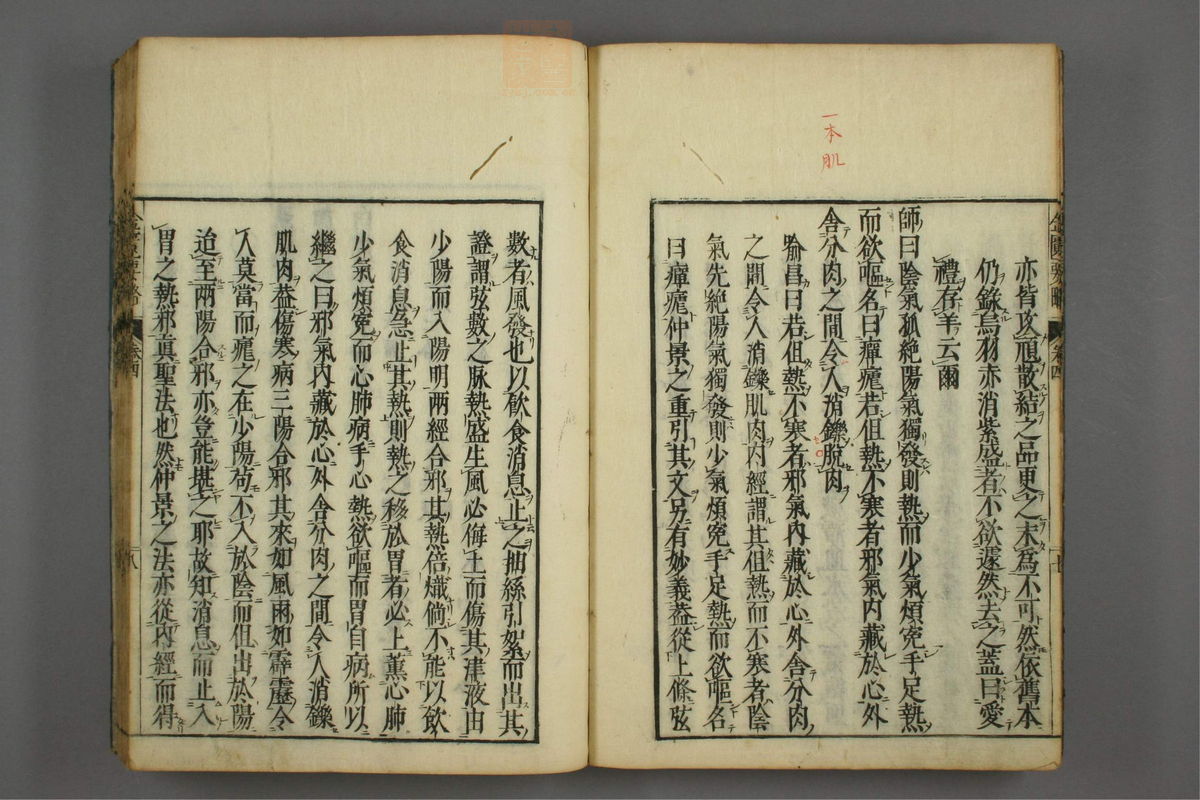 亦皆攻頑散結之品更之未爲不可然依舊本
仍錄烏羽亦消紫盛者不欲遽然去之蓋曰愛
禮存羊云爾
師曰陰氣孤絶陽氣獨發則熱而少氣煩寃手足熱
而欲嘔名曰癉瘧若但熱不寒者邪氣內藏於心外
舍分肉之間令人消鑠脫肉
一本肌
喻昌曰若但熱不寒者邪氣內藏於心外舍分肉
之間令人消鑠肌肉內經謂其但熱而不寒者陰
氣先絶陽氣獨發則少氣煩寃手足熱而欲嘔名
曰癉瘧仲景之重引其文另有妙義葢從上條弦
數者風發也以飲食消息止之抽絲引絮而出其
證謂弦數之脉熱盛生風必侮土而傷其津液由
少陽而入陽明兩經合邪其熱倍熾倘不能以飲
食消息急止其熱則熱之移於胃者必上薰心肺
少氣煩寃而心肺病手心熱欲嘔而胃自病所以
繼之曰邪氣內藏於心外舍分肉之間令人消鑠
肌肉葢傷寒病三陽合邪其來如風雨如霹靂令
人莫當而瘧之在少陽茍不入於陰而但出於陽
迫至兩陽合邪亦豈能堪之耶故知消息而止入
胃之熱邪眞聖法也然仲景之法亦從內經而得
卷四
八